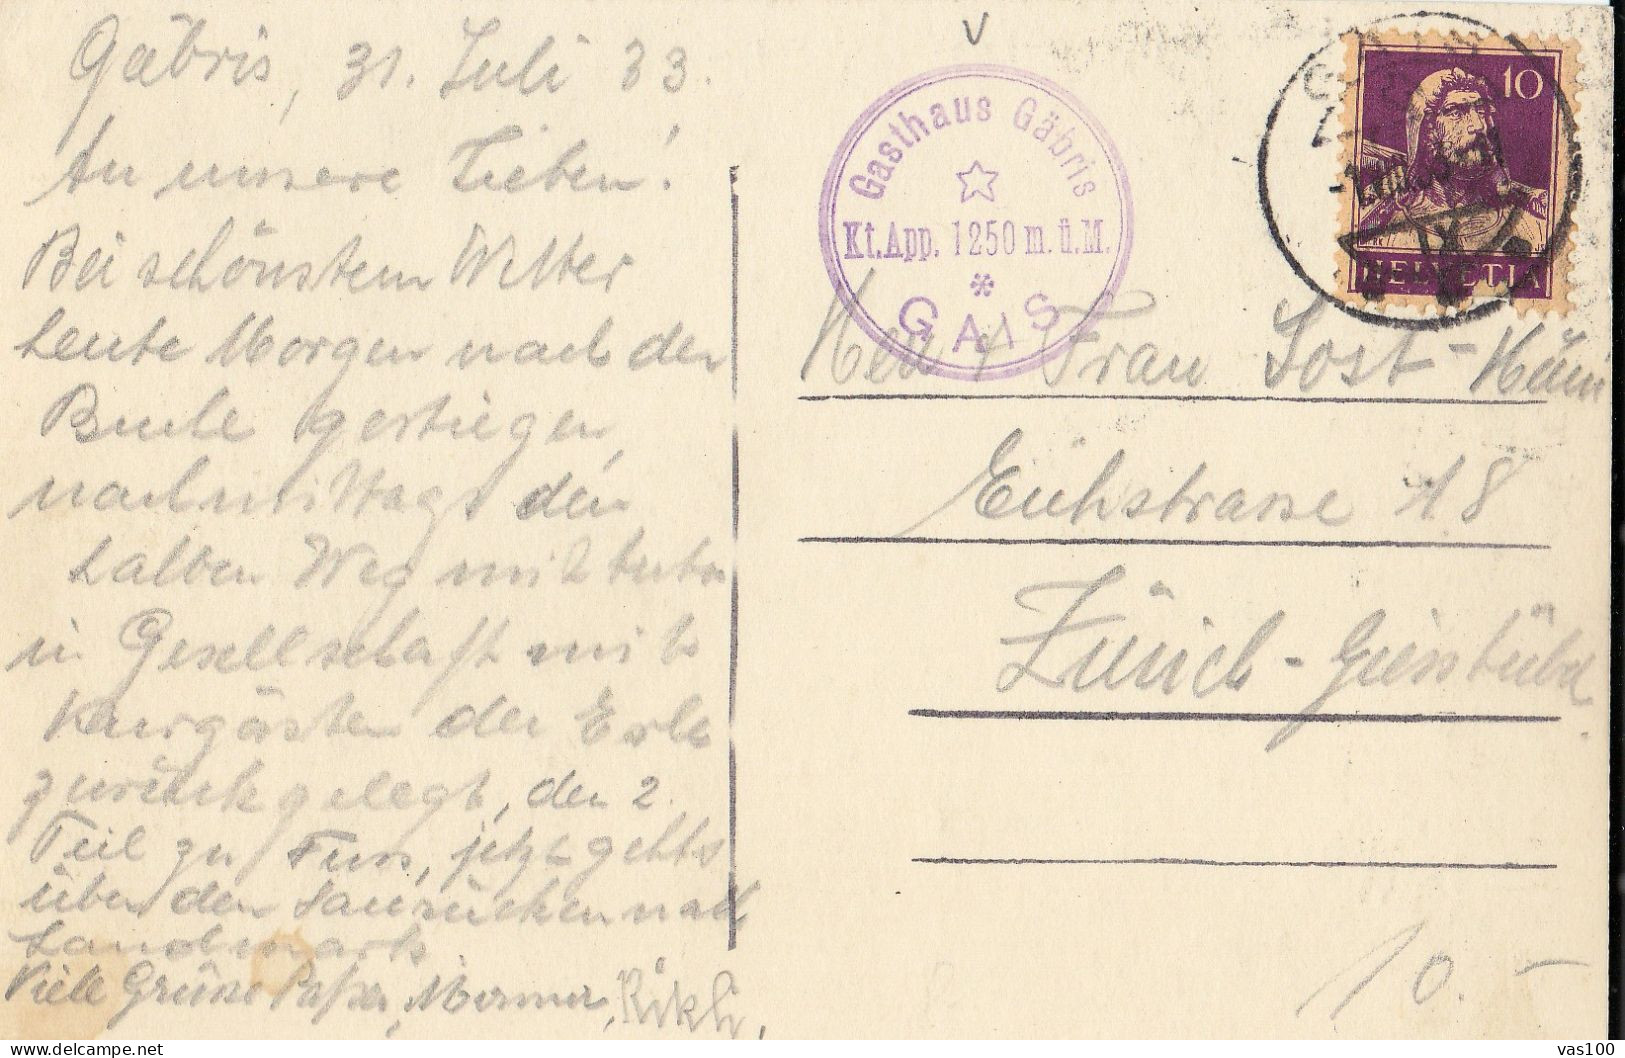 Gäbris, 31. Juli 33.
An unsere Lieben!
Bei schönstem Wetter
heute Morgen nach der
Buche gestiegen,
nachmittags den
halben Weg mit Auto
in Gesellschaft mit
Kurgästen der
zurückgelegt, den 2.
Teil zu Fuss, jetzt gehts
über den Saurücken nach
Landmark
Viele Grüsse Papa,
Gasthaus Gäbris
Kt. App. 1250 m. ü. M.
*
GAIS
10
HELVETIA
Herr & Frau Jost-
18
Zürich-Giesshübel.
10.-
vas100